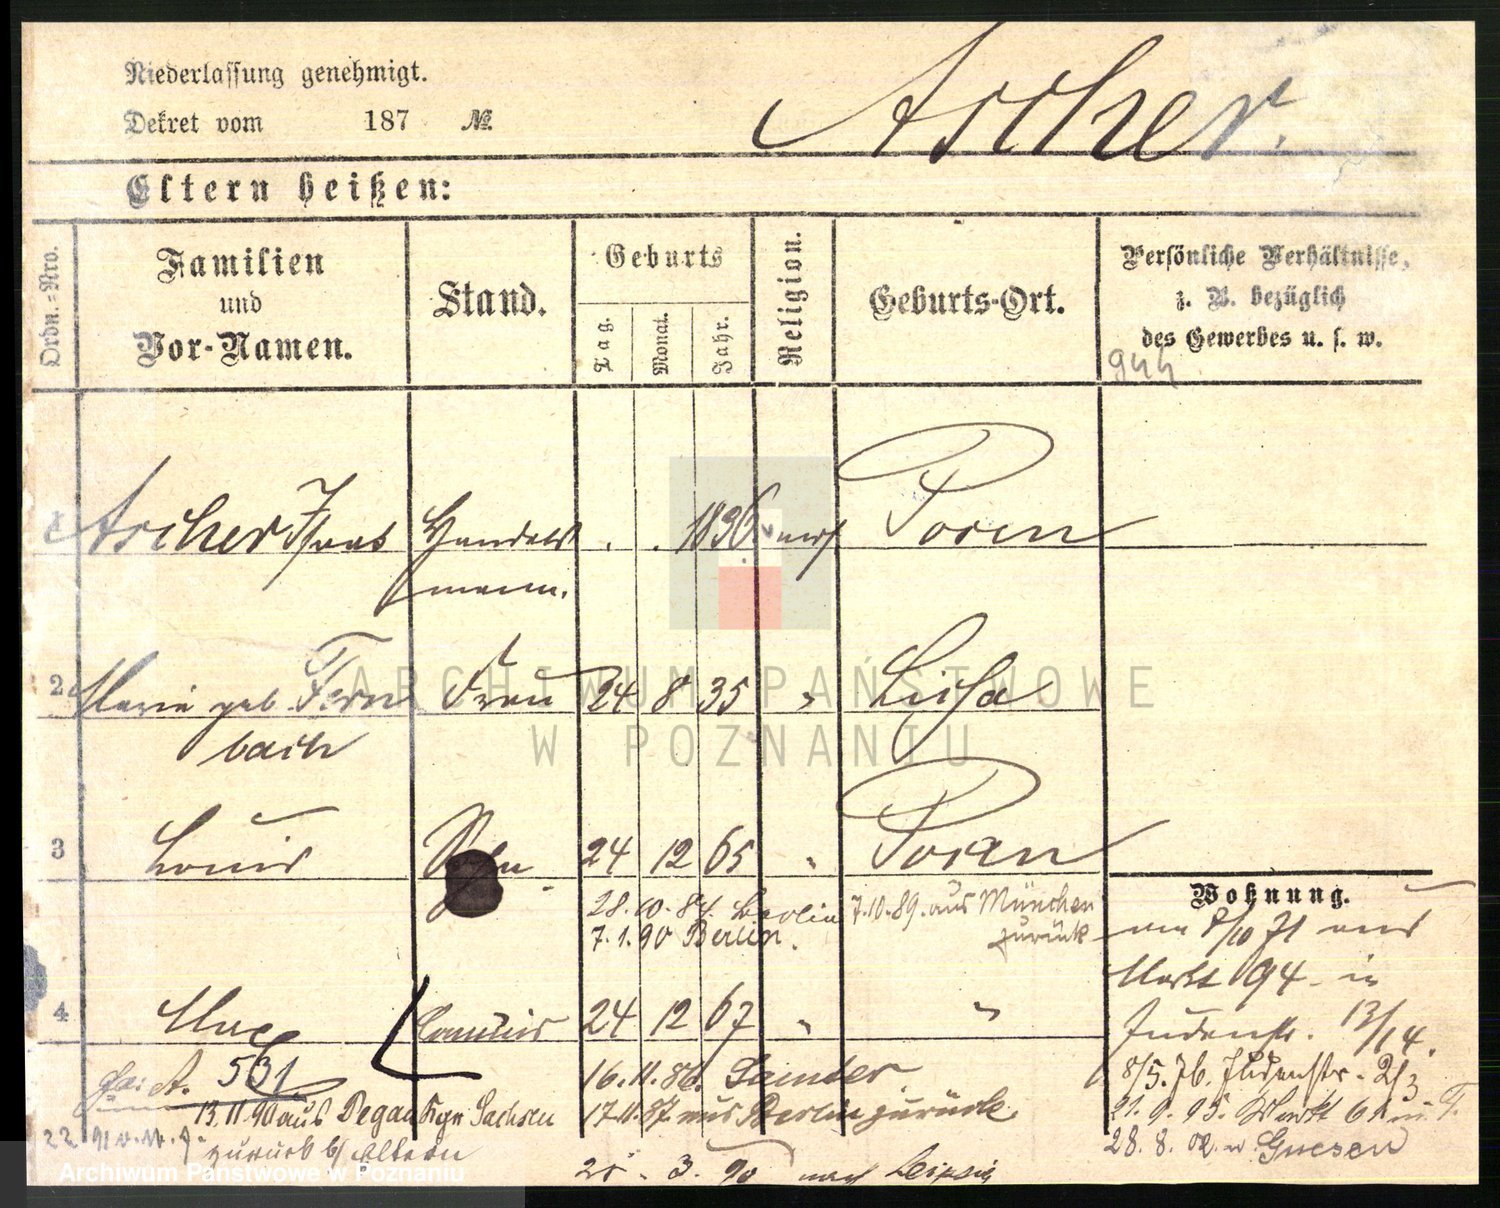 Niederlassung genehmigt.
Dekret vom 187 №.
Ascher.
Eltern heißen:
Ordn.=Nro.
Familien
und
Vor-Namen.
Stand.
Geburts
Tag.
Monat.
Jahr.
Religion.
Geburts-Ort.
Persönliche Verhältnisse,
z. B. bezüglich
des Gewerbes u. s. w.
944
1 Ascher Isaac Handels . . 1836 mos Posen
mann.
2 Marie geb Fern Frau 24 8 35 " Lissa
bach
3 Louis Sohn 24 12 65 " Posen
28.10.84. Berlin 7.10.89. aus München
7.1.90 Berlin. zurück
Wohnung.
am 8/10 71 aus
Markt 94 in
Judenstr. 13/14.
8/5.76. Judenstr. 2/3
21.9.95. Markt 61
28.8.02. n Gnesen
4 Max Commis 24 12 67 " "
A. 531
16.11.86. Samter
13.11.90 aus Pegau Kgr Sachsen 17.11.87 aus Berlin zurück.
zurück b/ Eltern
3. 90 nach Leipzig
ARCHIWUM PAŃSTWOWE
W POZNANIU
Archiwum Państwowe w Poznaniu